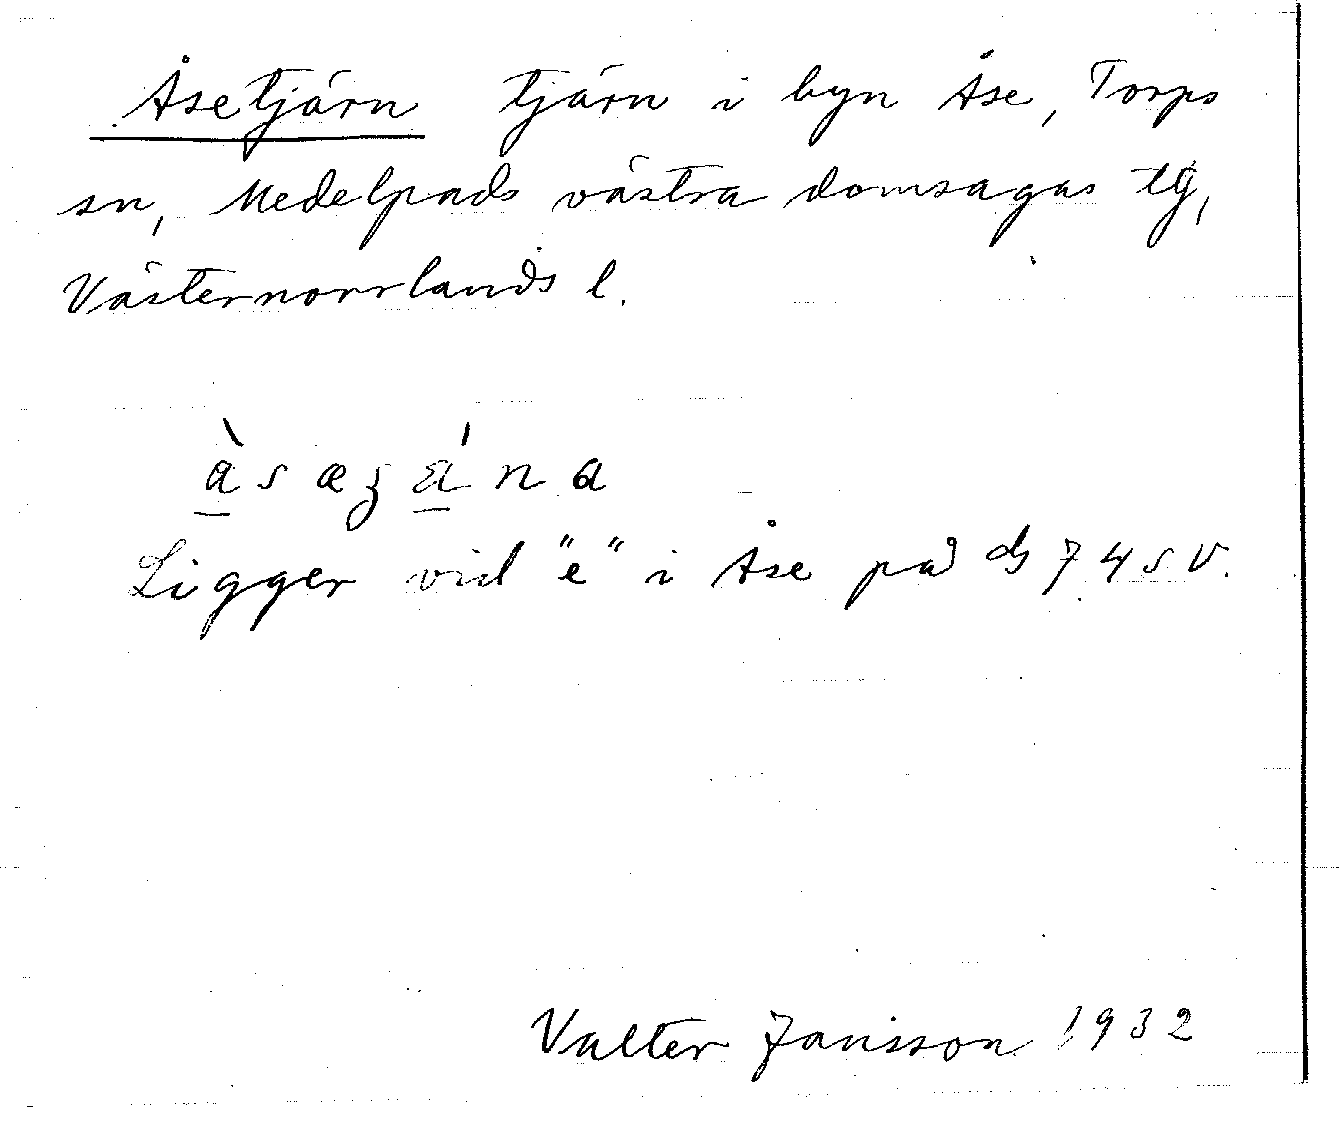 Åsetjärn tjärn i byn Åse, Torps
sn, Medelpads västra domsagas tg,
Västernorrlands l.
Ligger vid "e" i Åse på db 74 SV.
Valter Jansson 1932